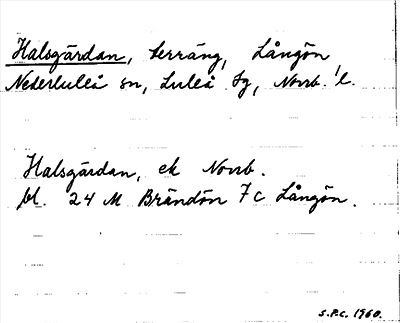 Halsgärdan, terräng, Långön,
Nederluleå sn, Luleå tg, Norrb. l.
Halsgärdan, ek Norrb.
bl. 24 M Brändön 7 c Långön.
S.P.C. 1960.